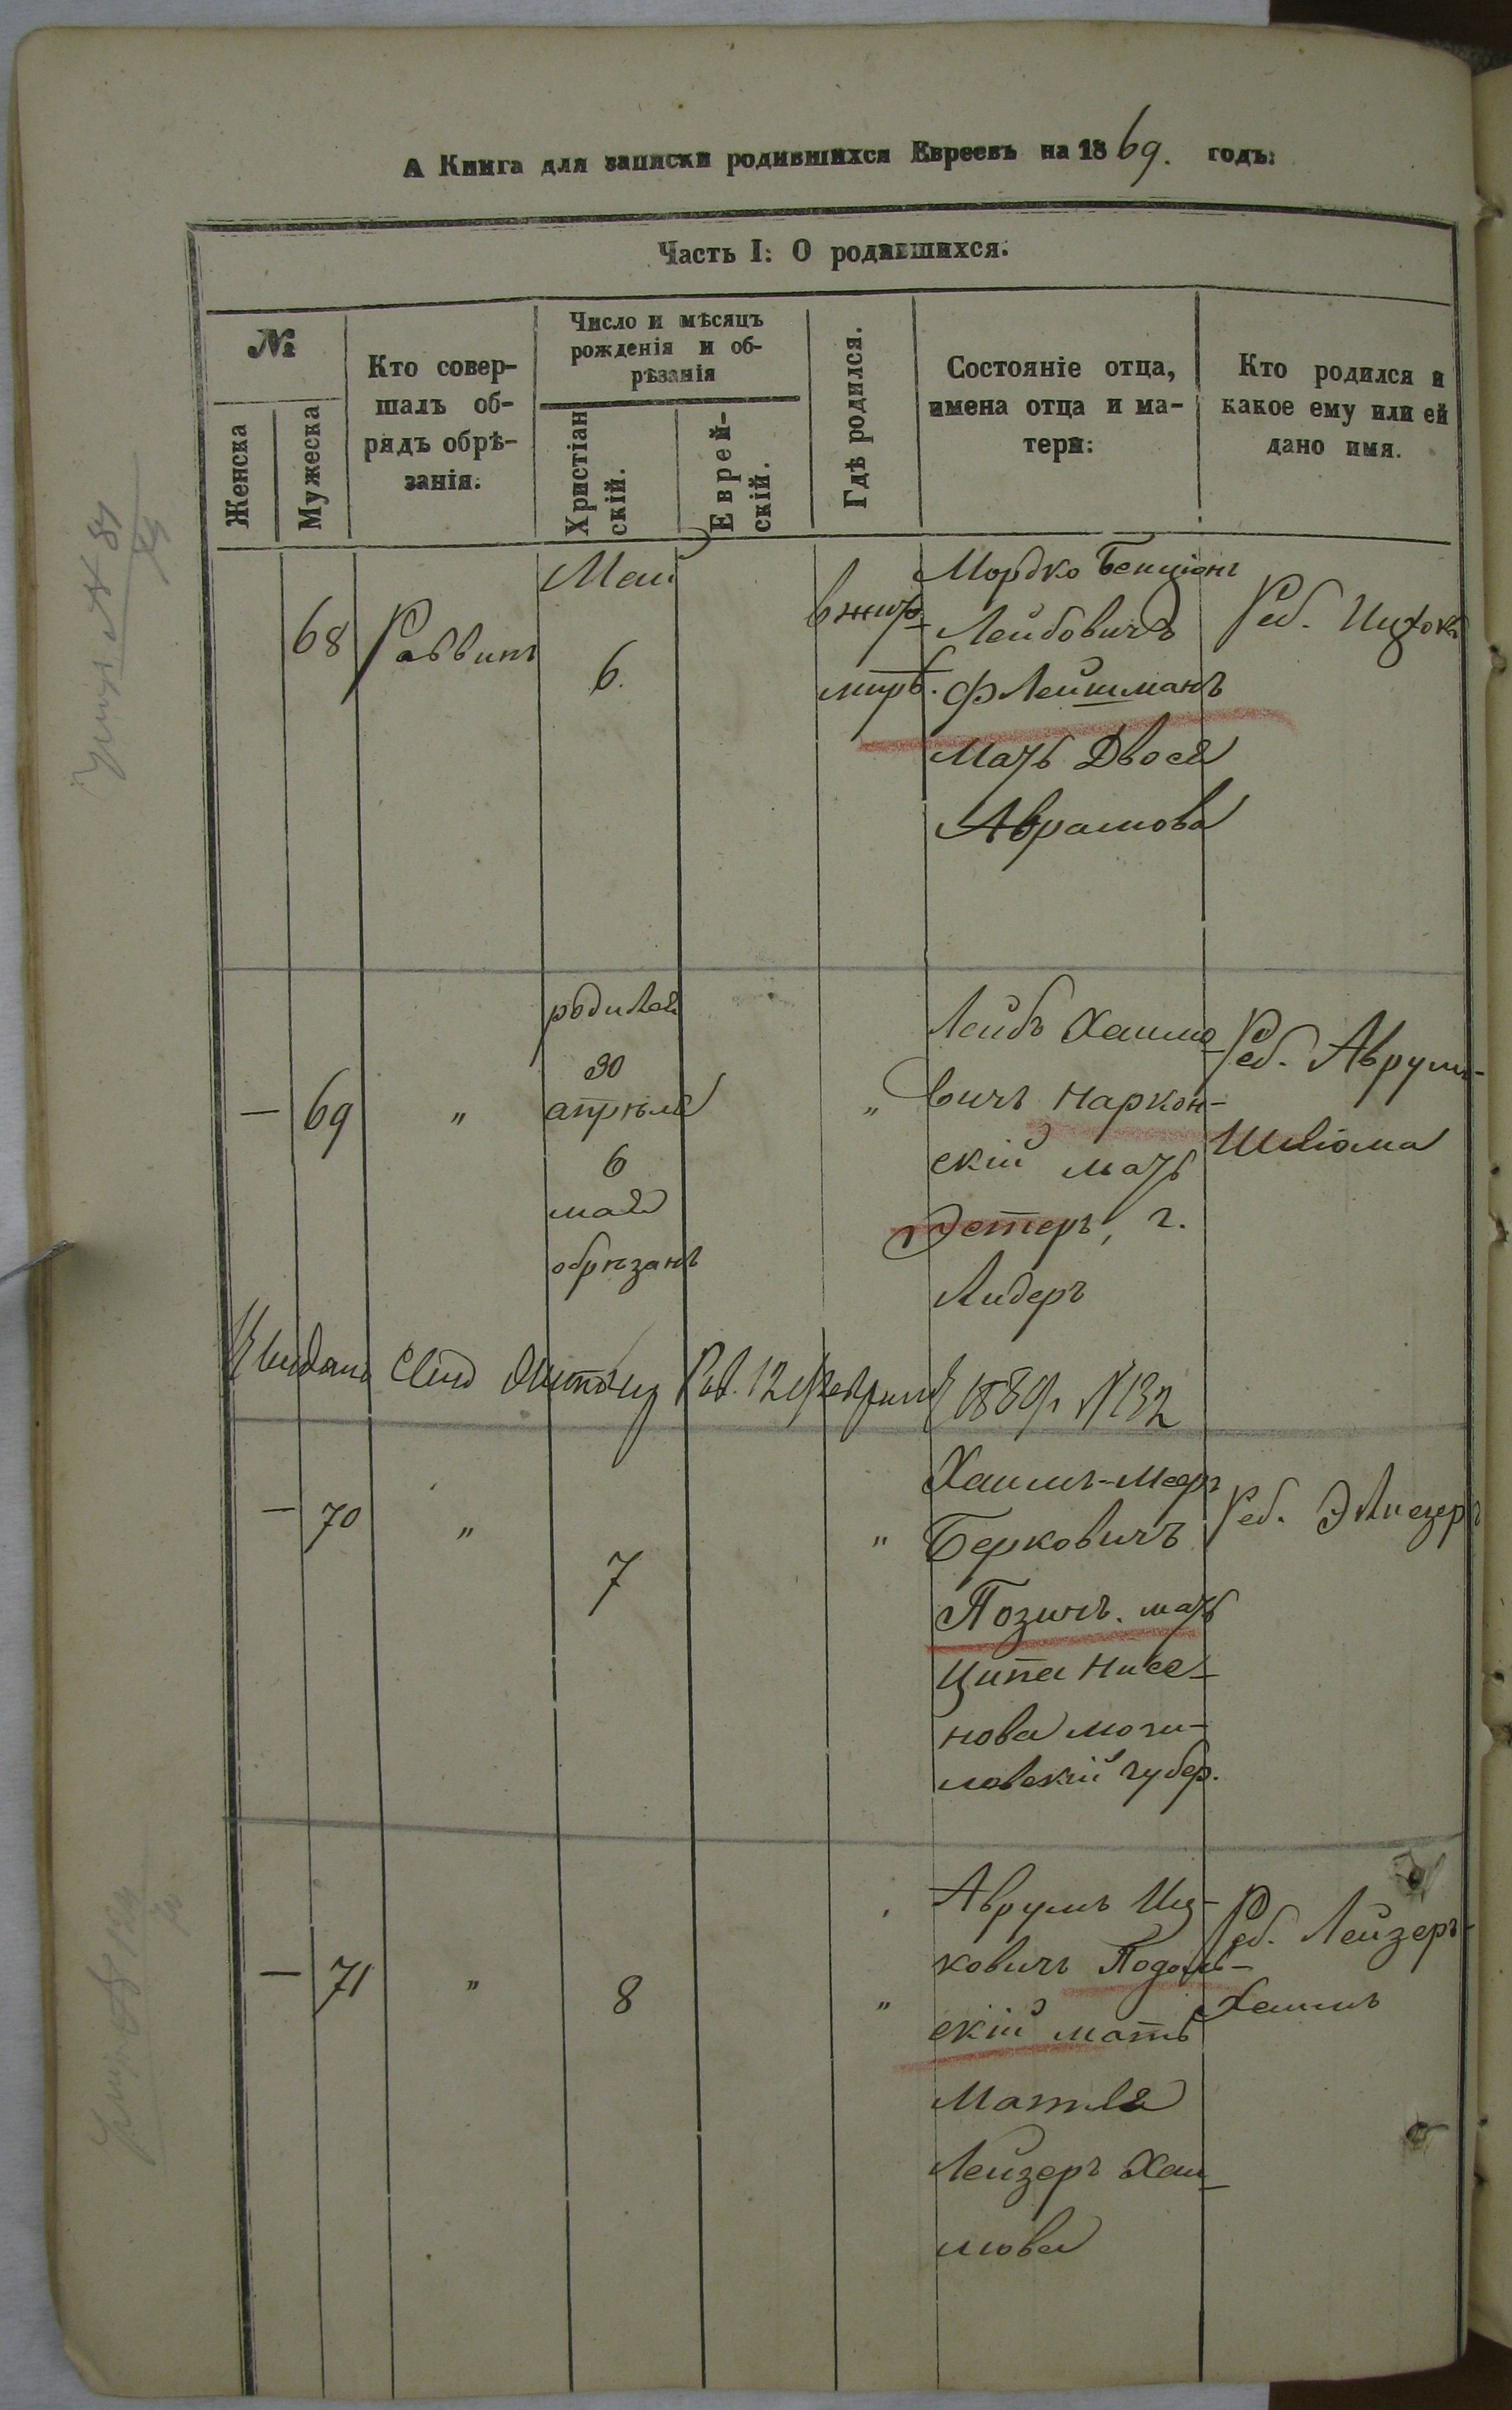 А Книга для записки родившихся Евреевъ на 1869. годъ:
Часть I: О родившихся.
№
Женска
Мужеска
Кто совер-
шалъ об-
рядъ обрѣ-
занія.
Число и мѣсяцъ
рожденія и об-
рѣзанія
Христіан
скій.
Еврей-
скій.
Гдѣ родился.
Состояніе отца,
имена отца и ма-
тери:
Кто родился и
какое ему или ей
дано имя.
68
Раввинъ
Май
6.
в жит
мирѣ.
Мордко Бенціонъ
Лейбовичъ
Флейшманъ
Мать Двося
Аврамова
Реб. Ицхокъ
— 69
"
родился
30
апрѣля
6
мая
обрѣзанъ
"
Лейбъ Хаимо
вичъ Наркон-
скій мать
Эстеръ, г.
Лидеръ
Реб. Аврумъ-
Шліома
Рав. 12 февраля 1889 г. N 132
— 70
"
7
"
Хаимъ-Меер
Берковичъ
Позинъ. мать
Ципа Нисе-
нова моги-
ловскій губер.
Реб. Элиезеръ
— 71
"
8
"
Аврумъ Иц-
ковичъ Подоль-
скій мать
Матля
Лейзеръ Хаи-
мова
Реб. Лейзеръ-
Хаимъ